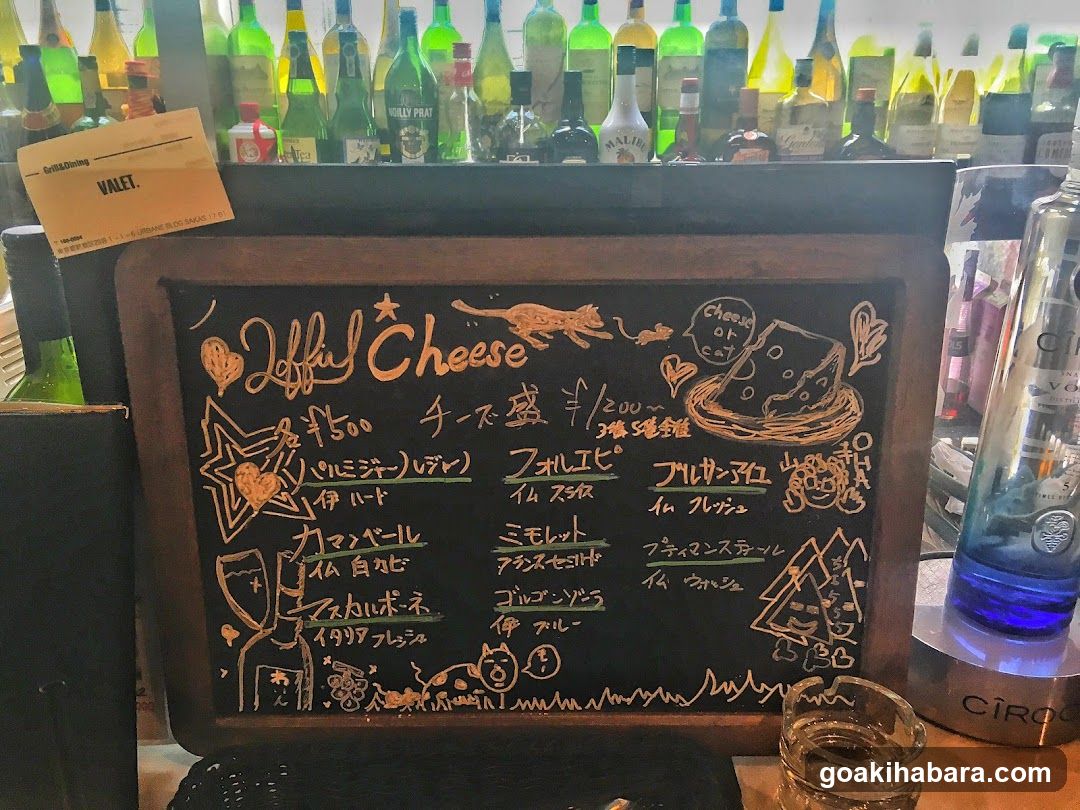 NOILLY PRAT
MALIBU
Grill&Dining
VALET.
Cheese
cheese
or
cat
¥500
チーズ盛 ¥1200~
パルミジャーノレジャーノ
伊 ハード
カマンベール
イム 白カビ
マスカルポーネ
イタリア フレッシュ
フォルエピ
イム スライス
ミモレット
フランスセミハード
ゴルゴンゾーラ
伊 ブルー
ブルサンアイユ
イム フレッシュ
プティマンステール
イム ウォッシュ
わいん
CÎROC
goakihabara.com